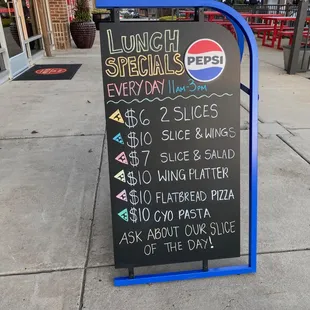 LUNCH
SPECIALS
PEPSI
EVERYDAY 11am-3pm
$6 2 SLICES
$10 SLICE & WINGS
$7 SLICE & SALAD
$10 WING PLATTER
$10 FLATBREAD PIZZA
$10 CYO PASTA
ASK ABOUT OUR SLICE
OF THE DAY!